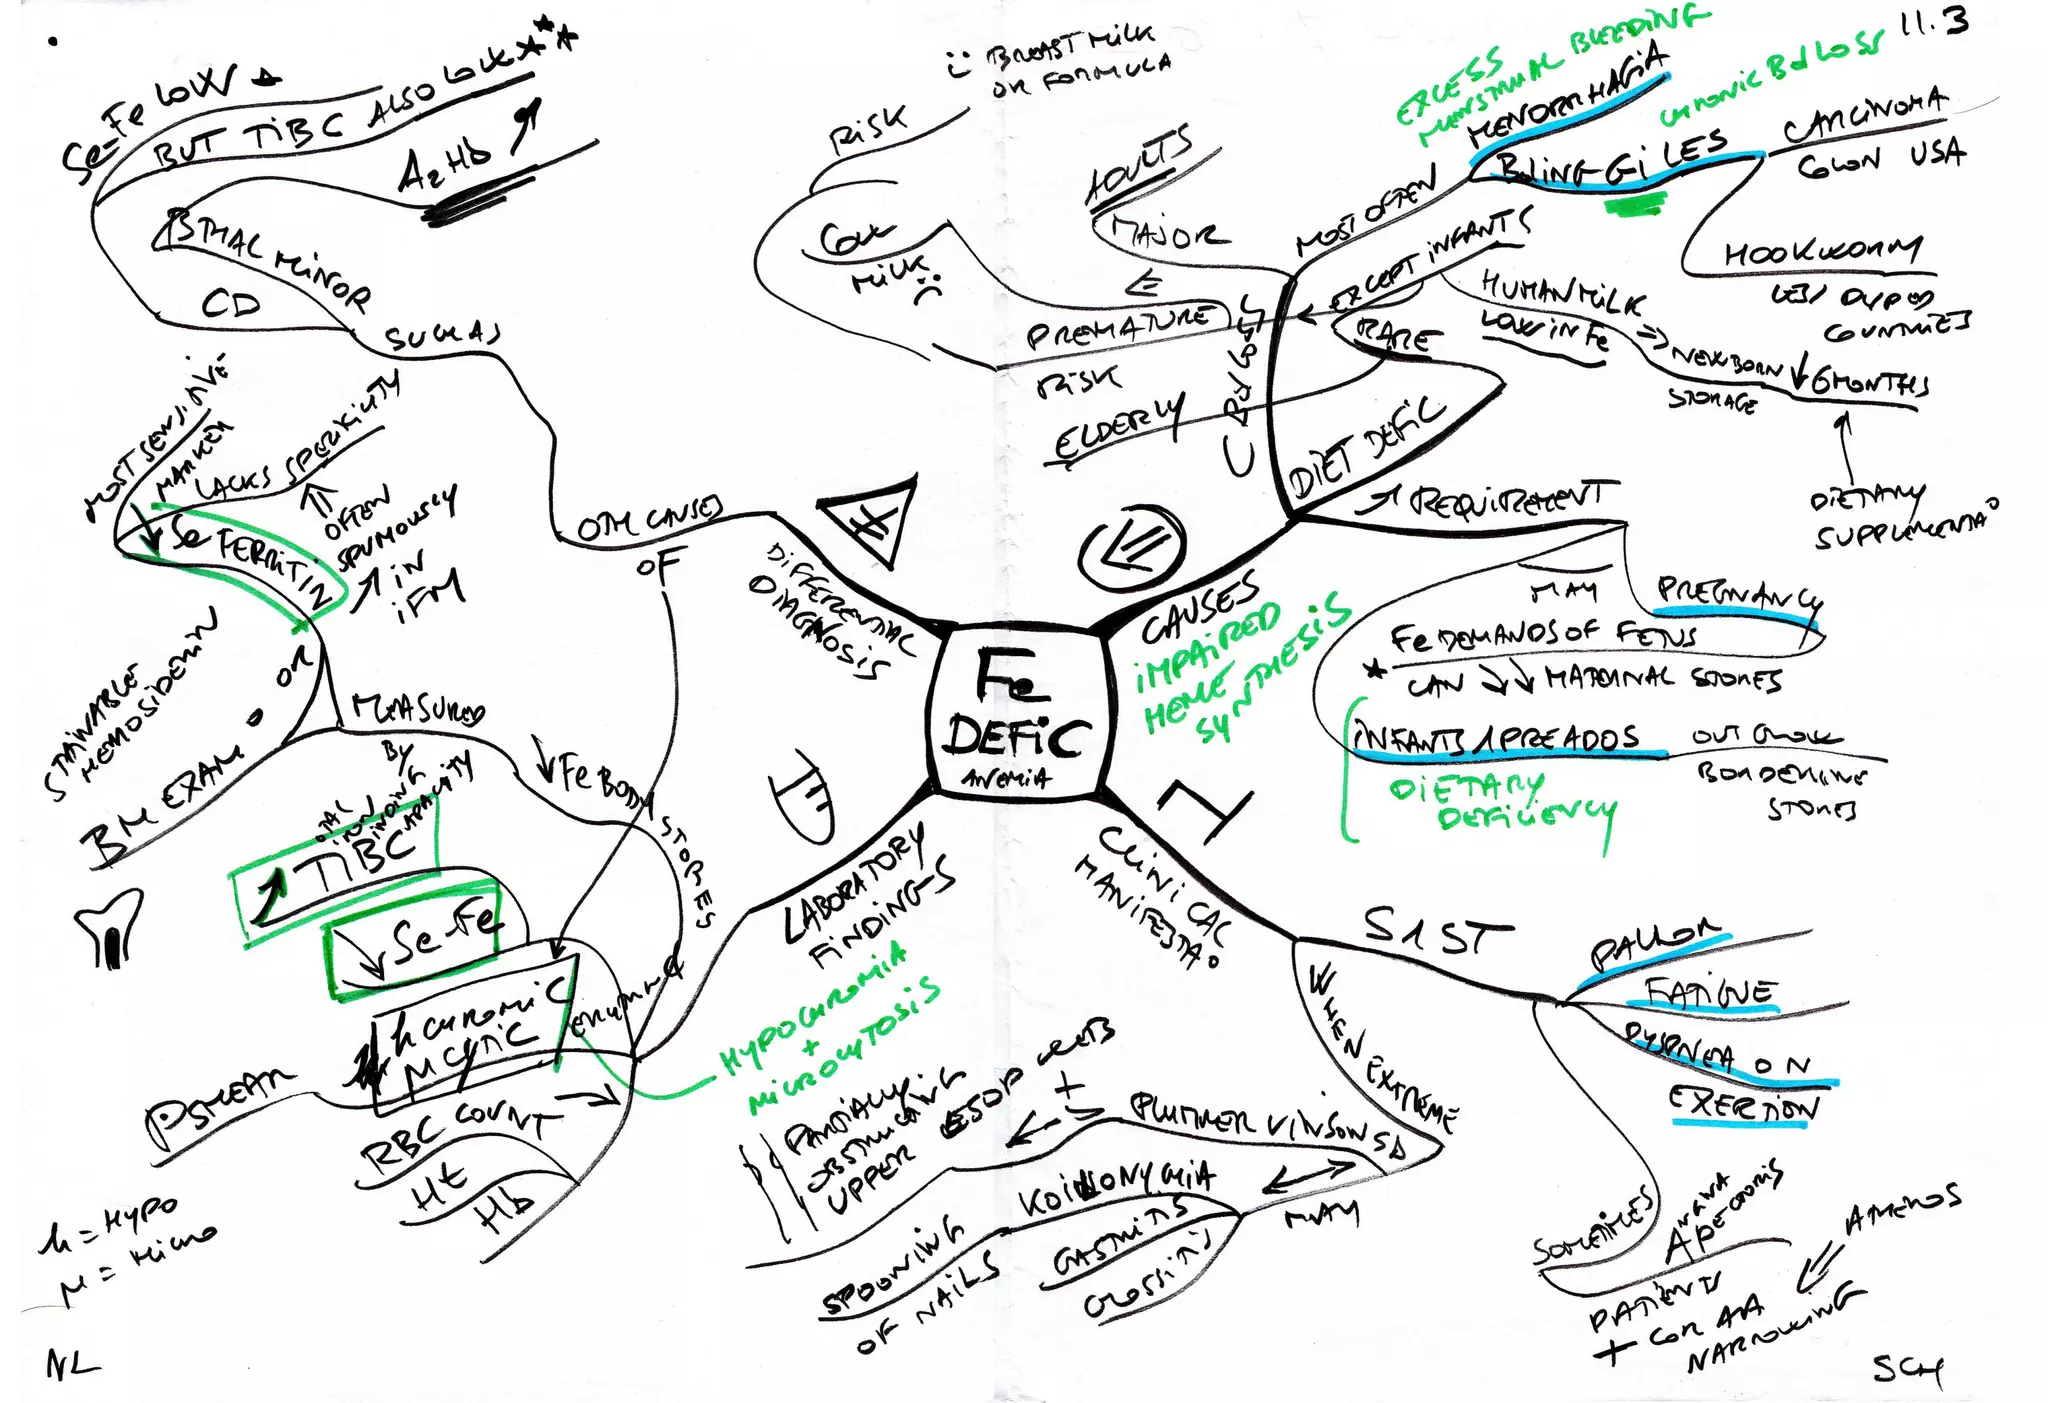 11.3
Se-Fe LOW
BUT TIBC ALSO LOW
A2Hb
THAL MINOR
CD
SUCH AS
OTH CAUSES
OF
DIFFERENTIAL
DIAGNOSIS
BREAST MILK
OR FORMULA
RISK
COW
MILK
ADULTS
MAJOR
PREMATURE
RISK
ELDERLY
EXCESS
MENSTRUAL BLEEDING
MENORRHAGIA
CHRONIC Bd LOSS
MOST OFTEN
BdING GI LES
CARCINOMA
COLON USA
HOOKWORM
LESS DVPED
COUNTRIES
EXCEPT INFANTS
RARE
HUMAN MILK
LOW IN Fe
NEWBORN
STORAGE
6 MONTHS
DIETARY
DIET DEFIC
REQUIREMENT
MAY
PREGNANCY
Fe DEMANDS OF FETUS
CAN MATERNAL STORES
OUTGROW
BORDERLINE
STORES
DIETARY
DEFICIENCY
CAUSES
IMPAIRED
HEME
SYNTHESIS
Fe
DEFIC
ANEMIA
MOST SENSITIVE
MARKER
LACKS SPECIFICITY
OFTEN
IN
IFM
Se FERRITIN
STAINABLE
HEMOSIDERIN
OR
BM EXAM
MEASURED
BY
Fe BODY STORES
TOTAL
IRON
BINDING
CAPACITY
TIBC
Se-Fe
h CHROMIC
M CYTIC
PSMEAR
RBC COUNT
Ht
Hb
h = HYPO
M = MICRO
LABORATORY
FINDINGS
HYPOCHROMIA
+
MICROCYTOSIS
CLINICAL
MANIFESTA
S1ST
PALLOR
FATIGUE
DYSPNEA ON
EXERTION
SOMETIMES
ANGINA
PECTORIS
PATIENTS
+ COR AA
NARROWING
WHEN EXTREME
PLUMMER VINSON SD
PARTIALLY
OBSTRUCTING
UPPER ESOP WEBS
+
MAY
KOILONYCHIA
SPOONING
OF NAILS
GASTRITIS
GLOSSITIS
NL
SCH